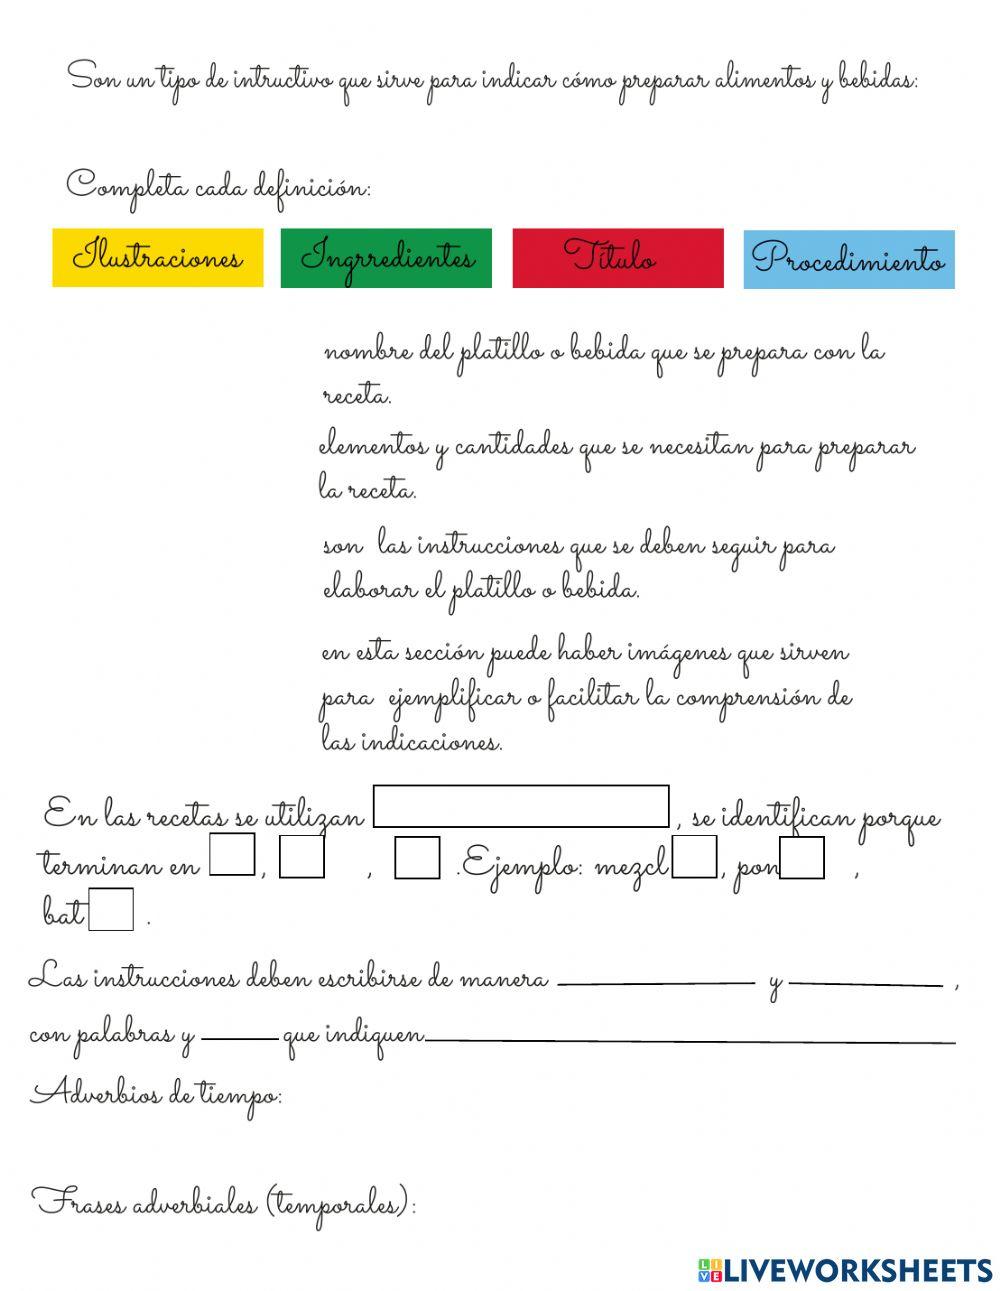 Son un tipo de intructivo que sirve para indicar cómo preparar alimentos y bebidas:
Completa cada definición:
Ilustraciones Ingrredientes Título Procedimiento
nombre del platillo o bebida que se prepara con la
receta.
elementos y cantidades que se necesitan para preparar
la receta.
son las instrucciones que se deben seguir para
elaborar el platillo o bebida.
en esta sección puede haber imágenes que sirven
para ejemplificar o facilitar la comprensión de
las indicaciones.
En las recetas se utilizan , se identifican porque
terminan en , , .Ejemplo: mezcl , pon ,
bat .
Las instrucciones deben escribirse de manera y ,
con palabras y que indiquen
Adverbios de tiempo:
Frases adverbiales (temporales):
LIVE LIVEWORKSHEETS